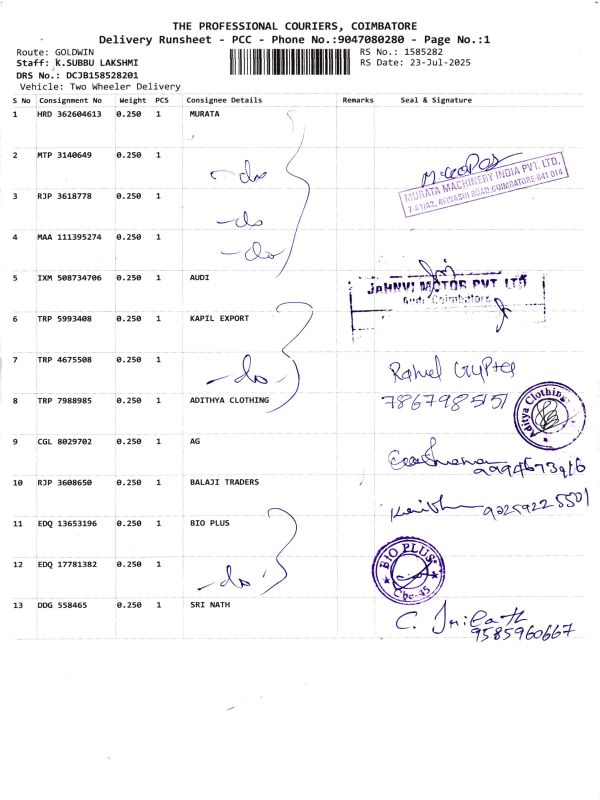 THE PROFESSIONAL COURIERS, COIMBATORE
Delivery Runsheet - PCC - Phone No.:9047080280 - Page No.:1
Route: GOLDWIN
RS No.: 1585282
Staff: K.SUBBU LAKSHMI
RS Date: 23-Jul-2025
DRS No.: DCJB158528201
Vehicle: Two Wheeler Delivery
S No Consignment No Weight PCS Consignee Details Remarks Seal & Signature
1 HRD 362604613 0.250 1 MURATA
2 MTP 3140649 0.250 1
-do
MURATA MACHINERY INDIA PVT. LTD.
7-A1/A2, AVINASHI ROAD, COIMBATORE-641 014
3 RJP 3618778 0.250 1
-do
4 MAA 111395274 0.250 1
-do
5 IXM 508734706 0.250 1 AUDI
JAHNVI MOTOR PVT LTD
Audi Coimbatore
6 TRP 5993408 0.250 1 KAPIL EXPORT
7 TRP 4675508 0.250 1
-do
Rahul Gupta
8 TRP 7988985 0.250 1 ADITHYA CLOTHING
7867985151
Aditya Clothing
9 CGL 8029702 0.250 1 AG
10 RJP 3608650 0.250 1 BALAJI TRADERS
92259225501
11 EDQ 13653196 0.250 1 BIO PLUS
BIO PLUS
Cbe-45
12 EDQ 17781382 0.250 1
-do
13 DDG 558465 0.250 1 SRI NATH
C. Srinath
9585960667